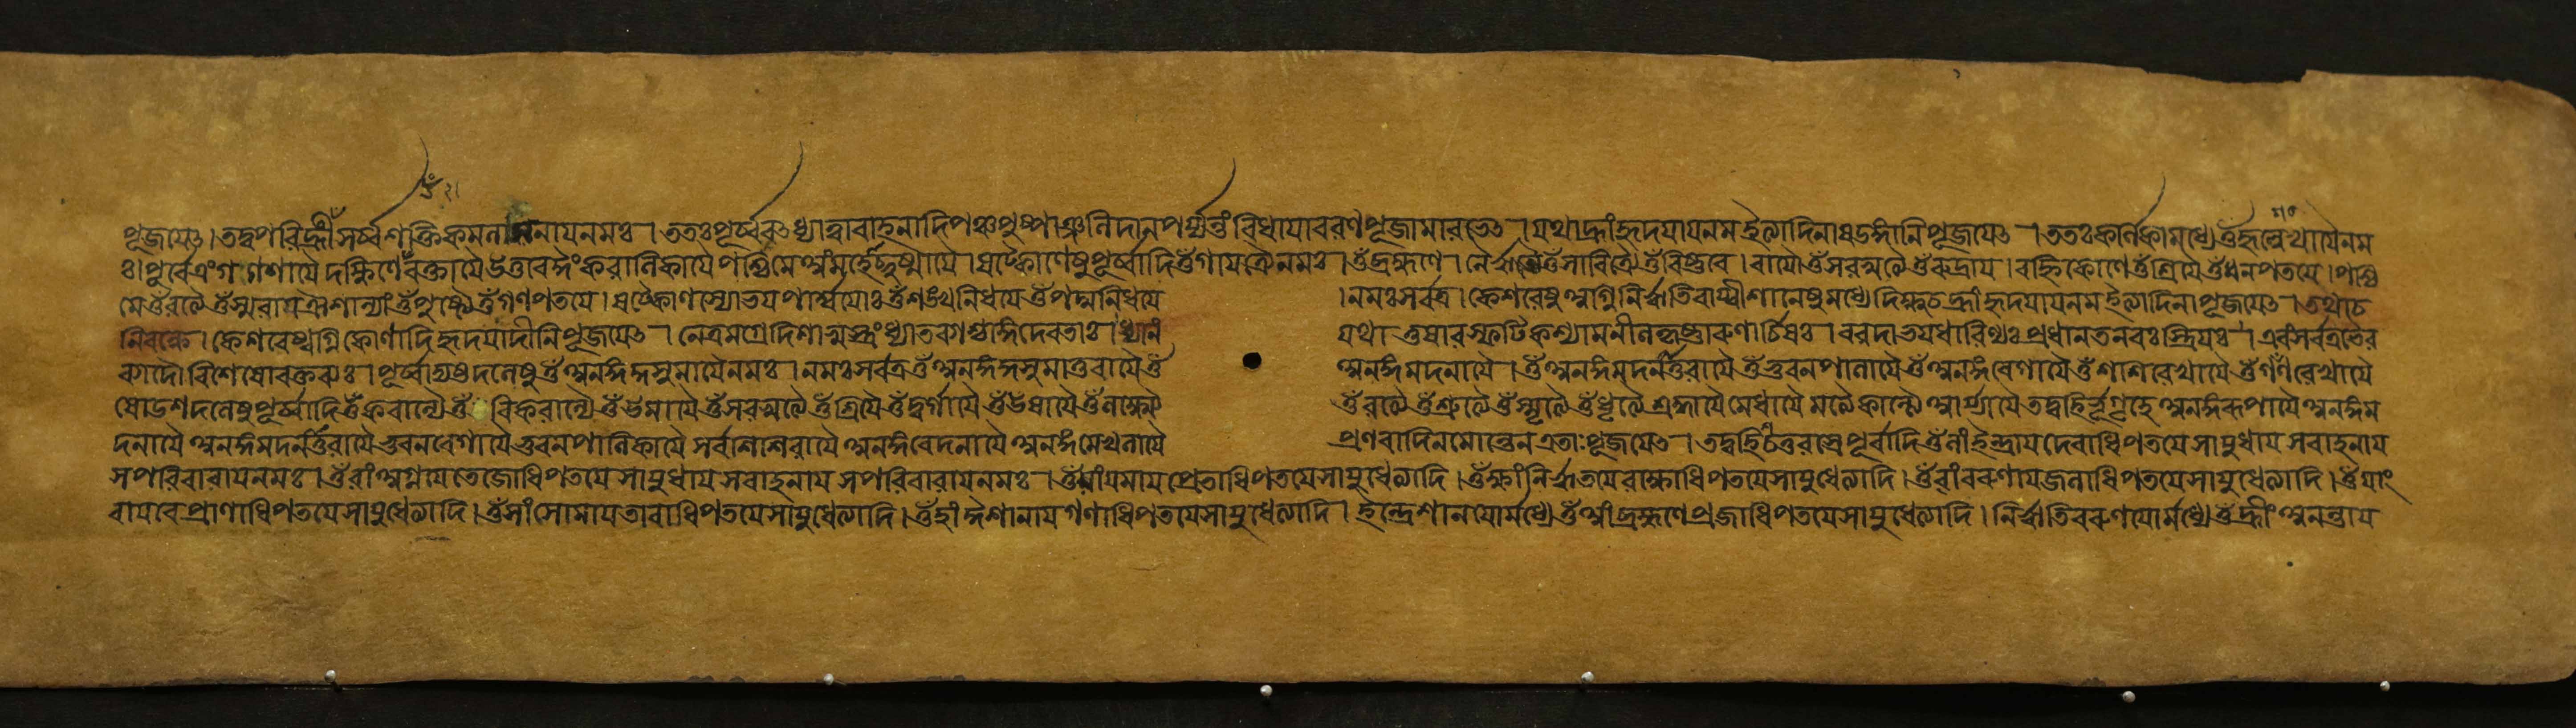 পূজয়েৎ। তদুপরি হ্রীঁ সর্ব্বশক্তিকমলাসনায় নমঃ। ততঃ পূর্ব্ববৎ ধ্যাত্বাবাহনাদিপঞ্চপুষ্পাঞ্জলিদানপর্য্যন্তং বিধায়াবরণপূজামারভেৎ। যথা হ্রাং হৃদয়ায় নম ইত্যাদিনা ষড়ঙ্গানি পূজয়েৎ। ততঃ কর্ণিকামধ্যে ওঁ হৃল্লেখায়ৈ নম
ঃ। পূর্ব্বে এং গগণায়ৈ দক্ষিণে রক্তায়ৈ করালিকায়ৈ পশ্চিমে মহোচ্ছুষ্মায়ৈ। ষট্কোণেষু পূর্ব্বাদি ওঁ গায়ত্র্যৈ নমঃ। ওঁ ব্রহ্মণে। নৈর্ঋতে ওঁ সাবিত্র্যৈ ওঁ বিষ্ণবে। বায়ৌ ওঁ সরস্বত্যৈ ওঁ রুদ্রায়। বহ্নিকোণে ওঁ শ্রিয়ৈ ওঁ ধনপতয়ে। পশ্চি
মে ওঁ রত্যৈ ওঁ স্মরায় ঐশান্যাং ওঁ পুষ্ট্যৈ ওঁ গণপতয়ে। ষট্কোণস্যোভয়পার্শ্বয়োঃ ওঁ শঙ্খনিধয়ে ওঁ পদ্মনিধয়ে । নমঃ সর্বত্র। কেশরেষু অগ্নিনির্ঋতিবায়্বীশানেষু মধ্যে দিক্ষু চ হ্রাং হৃদয়ায় নম ইত্যাদিনা পূজয়েৎ। তথা চ
নিবন্ধে। কেশরেষ্বগ্নিকোণাদি হৃদয়াদীনি পূজয়েৎ। নেত্রমগ্রে দিশাস্বস্ত্রং ধ্যাতব্যাশ্চাঙ্গদেবতাঃ। ধ্যানং যথা তুষারস্ফটিকশ্যামনীলকৃষ্ণারুণার্চিষঃ। বরদাভয়ধারিণ্যঃ প্রধানতনবঃ স্ত্রিয়ঃ। এবং সর্বত্র
বিশেষো বক্তব্যঃ। পূর্ব্বাদ্যষ্টদলেষু ওঁ অনঙ্গকুসুমায়ৈ নমঃ। নমঃ সর্বত্র ওঁ অনঙ্গকুসুমাতুরায়ৈ ওঁ অনঙ্গমদনায়ৈ। ওঁ অনঙ্গমদনাতুরায়ৈ ওঁ ভুবনপালায়ৈ ওঁ অনঙ্গবেগায়ৈ ওঁ শশিরেখায়ৈ ওঁ গগণরেখায়ৈ
ষোড়শদলেষু পূর্ব্বাদি ওঁ করাল্যৈ ওঁ বিকরাল্যৈ ওঁ উমায়ৈ ওঁ সরস্বত্যৈ ওঁ শ্রিয়ৈ ওঁ দুর্গায়ৈ ওঁ উষায়ৈ ওঁ লক্ষ্ম্যৈ ওঁ রত্যৈ ওঁ শ্রুত্যৈ ওঁ স্মৃত্যৈ ওঁ ধৃত্যৈ শ্রদ্ধায়ৈ মেধায়ৈ মত্যৈ কান্ত্যৈ আর্য্যায়ৈ তদ্বহির্ভূগৃহে অনঙ্গরূপায়ৈ অনঙ্গম
দনায়ৈ অনঙ্গমদনাতুরায়ৈ ভুবনবেগায়ৈ ভুবনপালিকায়ৈ সর্বশিশিরায়ৈ অনঙ্গবেদনায়ৈ অনঙ্গমেখলায়ৈ প্রণবাদিনমোন্তেন এতাঃ পূজয়েৎ। তদ্বহিশ্চতুরস্রে পূর্বাদি ওঁ লাং ইন্দ্রায় দেবাধিপতয়ে সায়ুধায় সবাহনায়
সপরিবারায় নমঃ। ওঁ রাং অগ্নয়ে তেজোধিপতয়ে সায়ুধায় সবাহনায় সপরিবারায় নমঃ। ওঁ যমায় প্রেতাধিপতয়ে সায়ুধেত্যাদি। ওঁ ক্ষাং নির্ঋতয়ে রাক্ষাধিপতয়ে সায়ুধেত্যাদি। ওঁ বাং বরুণায় জলাধিপতয়ে সায়ুধেত্যাদি। ওঁ যাং
বায়বে প্রাণাধিপতয়ে সায়ুধেত্যাদি। ওঁ সাং সোমায় তারাধিপতয়ে সায়ুধেত্যাদি। ওঁ হাং ঈশানায় গণাধিপতয়ে সায়ুধেত্যাদি। ইন্দ্রেশানয়োর্মধ্যে ওঁ আং ব্রহ্মণে প্রজাধিপতয়ে সায়ুধেত্যাদি। নির্ঋতিবরুণয়োর্মধ্যে ওঁ হ্রীং অনন্তায়